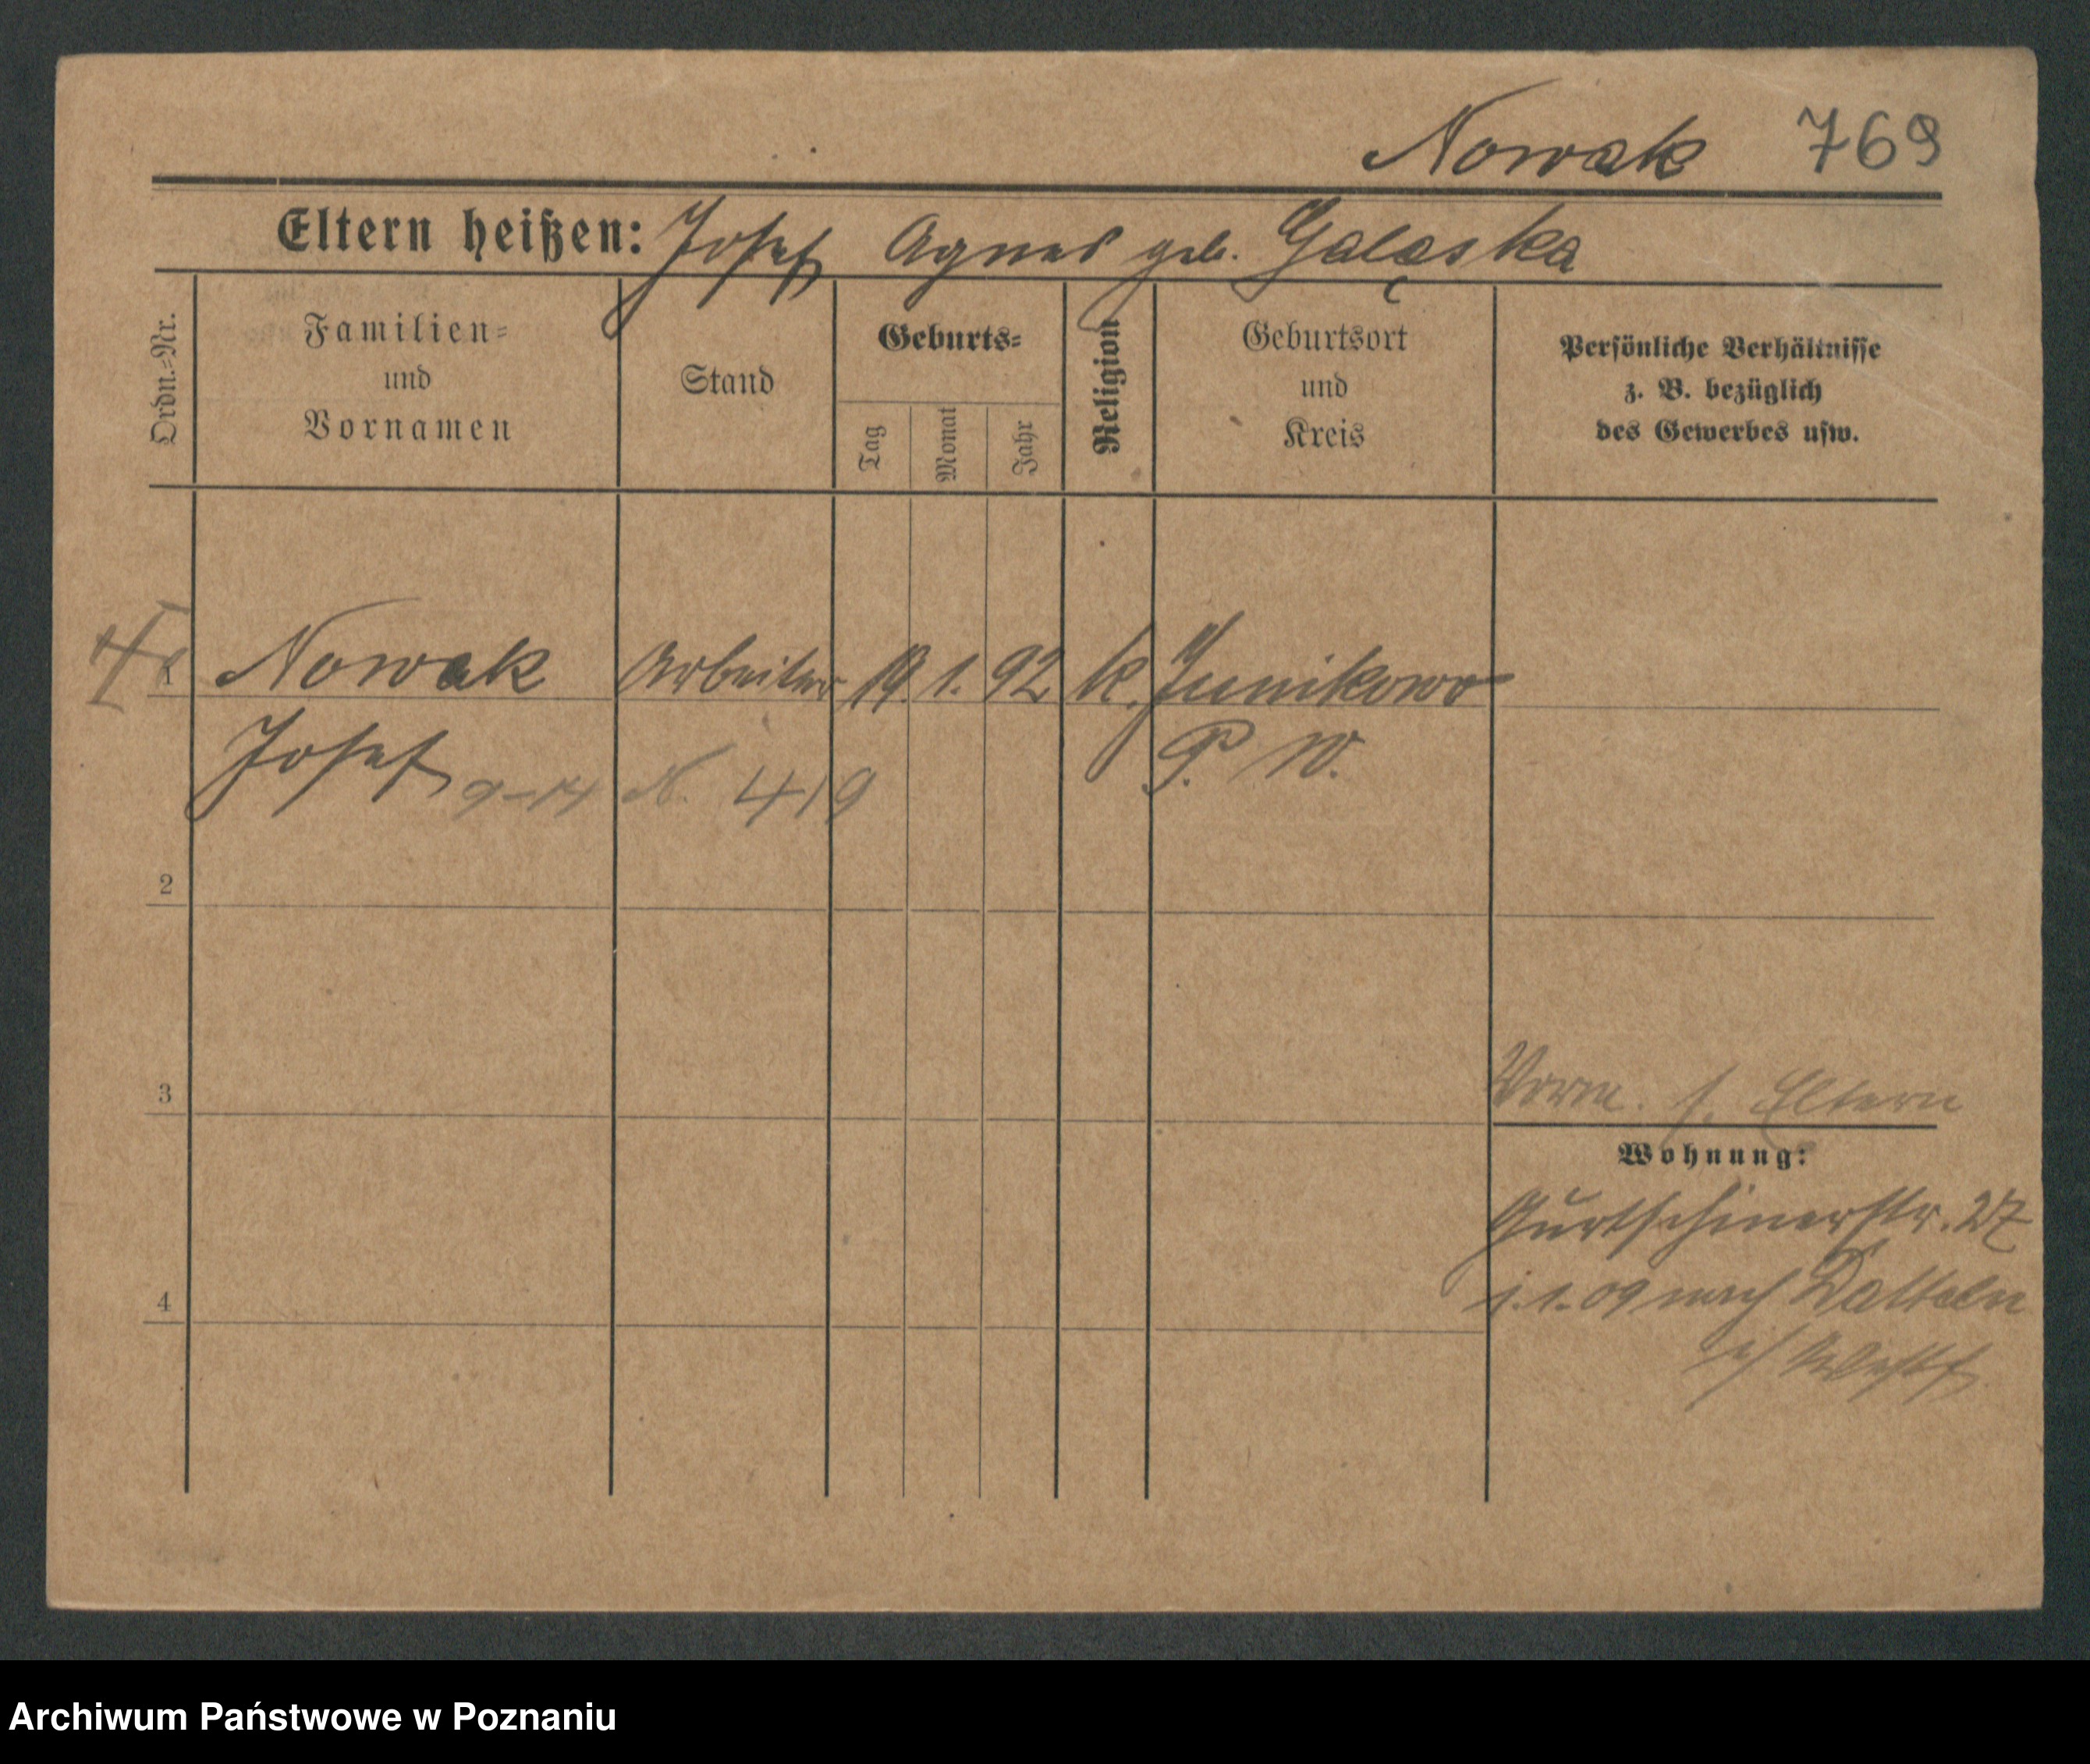 Nowak 769
Eltern heißen: Josef Agnes geb. Gałąska
Ordn.-Nr.
Familien-
und
Vornamen
Stand
Geburts-
Tag
Monat
Jahr
Religion
Geburtsort
und
Kreis
Persönliche Verhältnisse
z. B. bezüglich
des Gewerbes usw.
1 Nowak Arbeiter 19. 1. 92 k. Junikowo
Josef 9-14 N. 419 P. W.
2
3
Vorm. s. Eltern
Wohnung:
Gurtschinerstr. 27
4
1.09 nach Datteln
i/ Westf
Archiwum Państwowe w Poznaniu